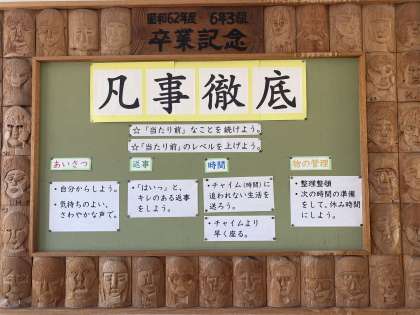 昭和62年度 6年3組
卒業記念
凡事徹底
☆「当たり前」なことを続けよう。
☆「当たり前」のレベルを上げよう。
あいさつ
・自分からしよう。
・気持ちのよい、
さわやかな声で。
返事
・「はいっ」と、
キレのある返事
をしよう。
時間
・チャイム(時間)に
追われない生活を
送ろう。
・チャイムより
早く座る。
物の管理
・整理整頓
・次の時間の準備
をして、休み時間
にしよう。